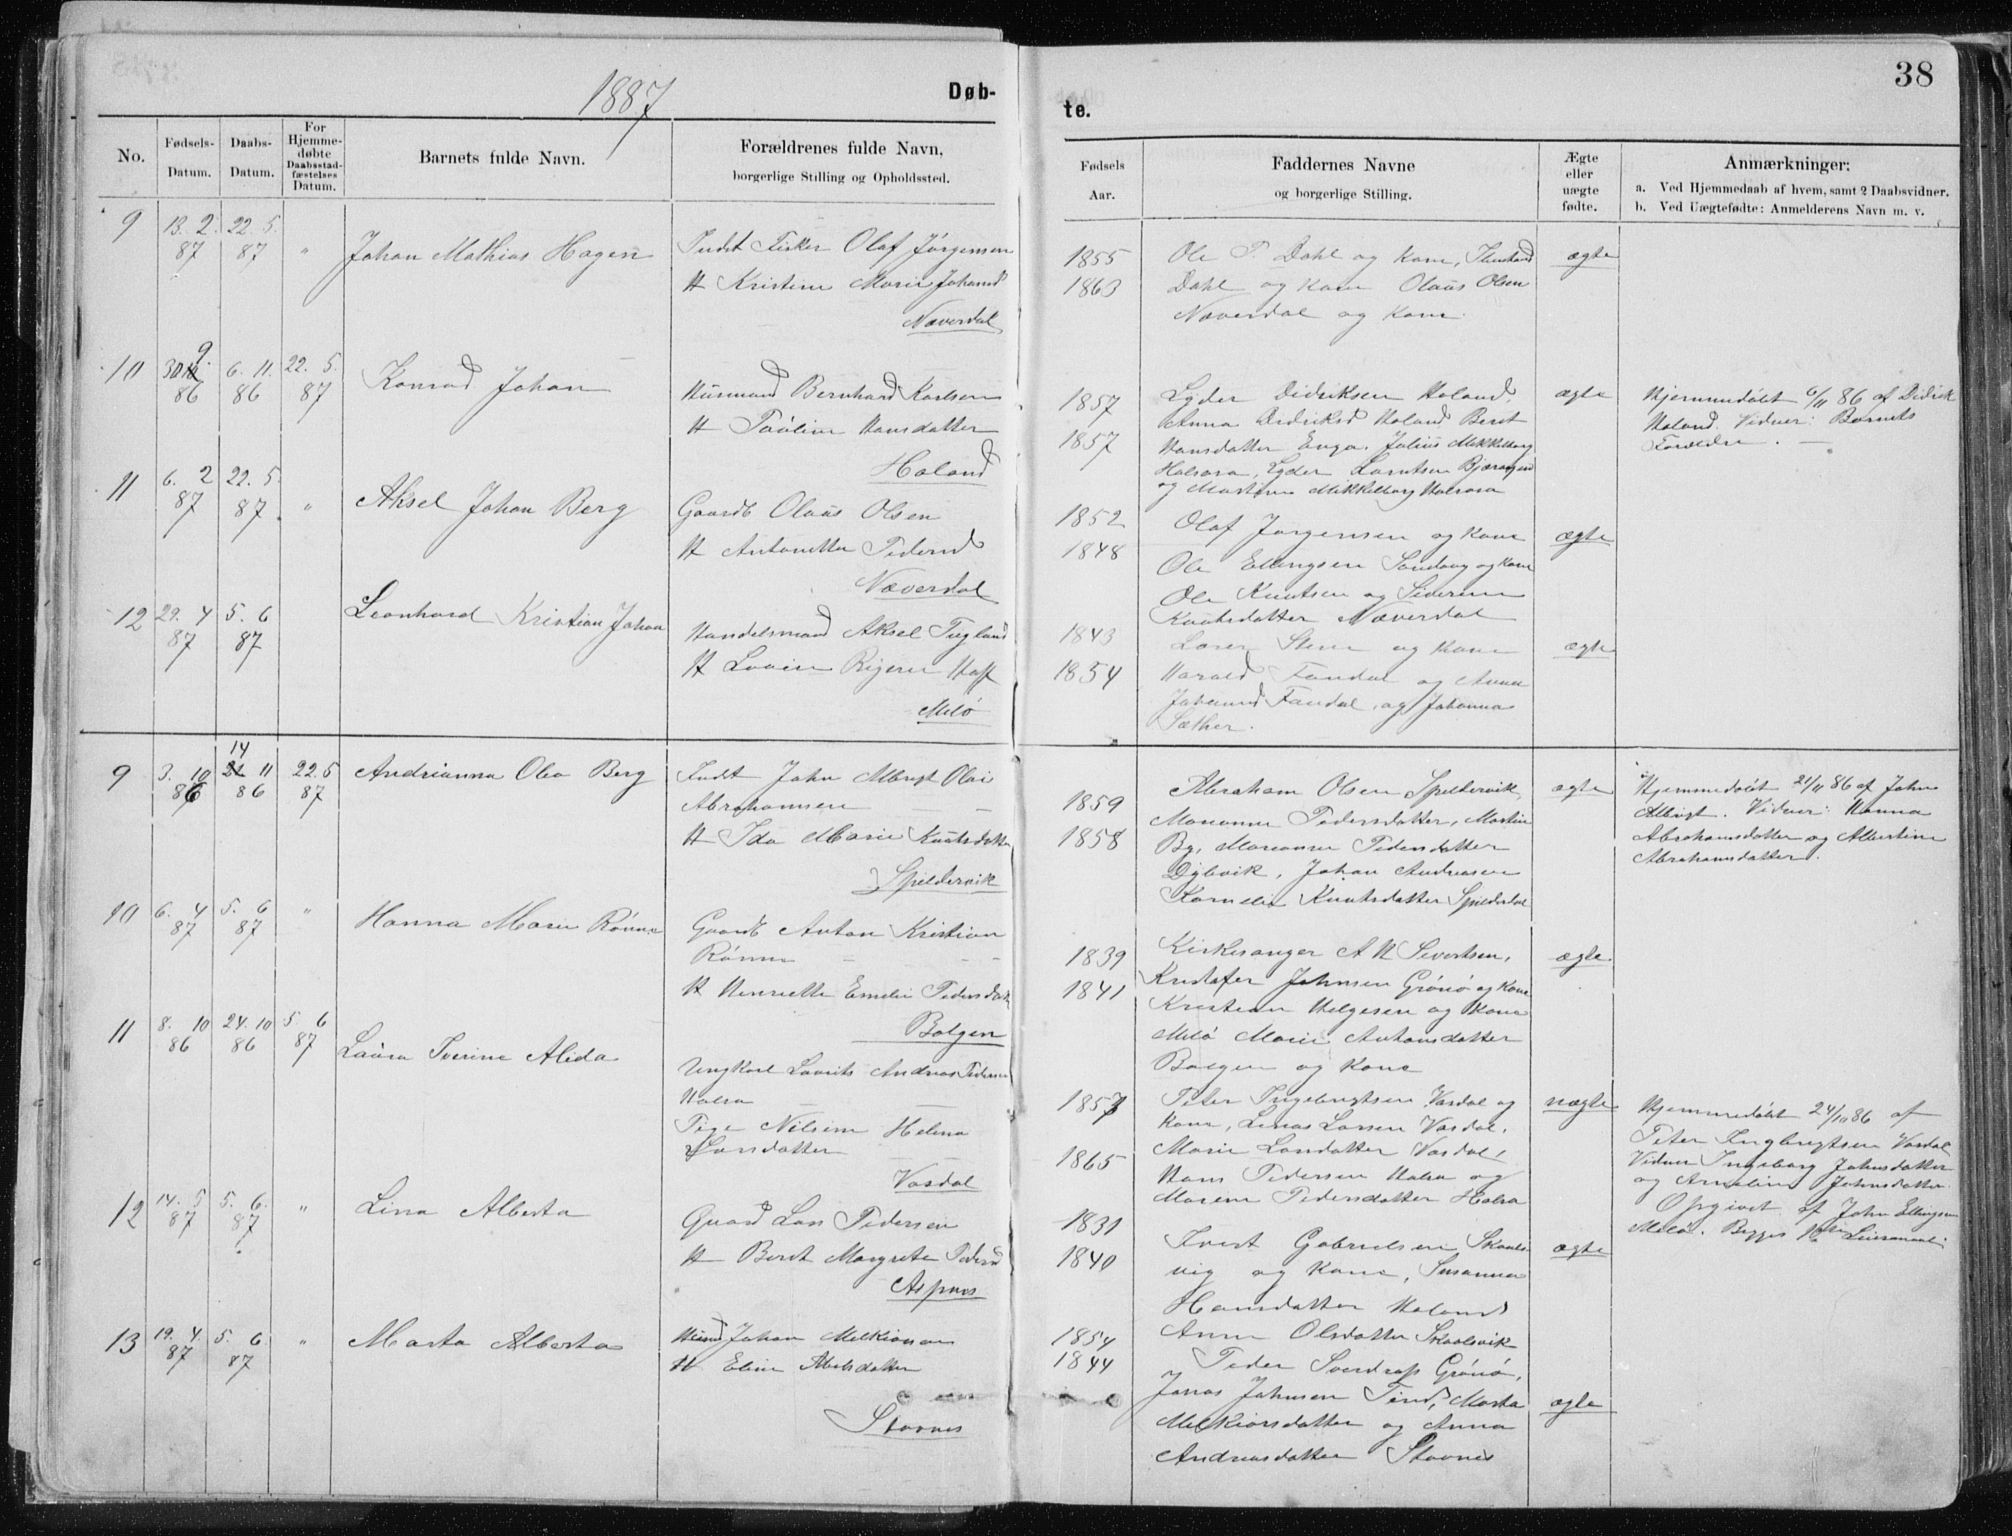 1887
Døb-
No.
Fødsels-
Datum.
Daabs-
Datum.
For
Hjemme-
døbte
Daabsstad-
fæstelses
Datum.
Barnets fulde Navn.
Forældrenes fulde Navn,
borgerlige Stilling og Opholdssted.
9
13. 2. 22. 5.
87 87 "
Johan Mathias Hagen
Indst Fisker Olaf Jørgensen
H Kristine Marie Johansd
Næverdal
10
9.
30 6. 11. 22. 5.
86 86 87
Konrad Johan
Husmand Bernhard Karlsen
H Pauline Hansdatter
Haland
11
6. 2 22. 5.
87 87. "
Aksel Johan Berg
Gaardb Olaus Olsen
H Antonette Pedersd
Næverdal
12
29. 4 5. 6
87 87
Leonhard Kristian Johan
Handelsmand Aksel
H Lovise
Melø
9
14
3. 10 21 11 22. 5
86 86 87
Andrianna Olea Berg
Indst John Albrigt Olai
Abrahamsen
H Ida Marie Knutsdatter
Spildervik
10
6. 4 5. 6 "
87 87
Hanna Marie Rønne
Gaardb Anton Kristian
Rønne
H Henriette Emelie Pedersdatter
Bolgen
11
8. 10 24. 10 5. 6
86 86 87
Laura Iverine Alida
Ungkarl Laurits Andreas Pedersen
Halsa
Pige Nilsine Helena
Larsdatter
Vasdal
12
14. 5 5. 6. "
87 87
Lina Alberta
Gaard Lars Pedersen
H Beret Margrete Pedersd
Aspnes
13
19. 4. 5. 6 "
87 87
Marta Alberta
Johan Melkiorsen
H. Eline Abelsdatter
Stavnes
38
te.
Fødsels
Aar.
Faddernes Navne
og borgerlige Stilling.
Ægte
eller
uægte
fødte.
Anmærkninger:
a. Ved Hjemmedaab af hvem, samt 2 Daabsvidner.
b. Ved Uægtefødte: Anmelderens Navn m. v.
1855
1863
Ole P. Dahl og Kone,
Dahl og Kone Olaus Olsen
Næverdal og Kone.
ægte
1857
1857
Lyder Didriksen Haland,
Anna Didriksd Haland Beret
Hansdatter Enga. Julius Mikkelborg
Halsosa, Lyder Larntsen Bjærangen
og Martine Mikkelborg Halsosa
ægte
Hjemmedøbt 6/11 86 af Didrik
Haland. Vidner: Barnets
Forældre. —
1852
1848
Olaf Jørgensen og Kone
Ole Ellingsen Sandvag og Kone
Ole Knutsen og
Knutsdatter Næverdal
ægte
1843
1854
Steen og Kone
Harald Fondal og Anna
Johansd Fondal, og Johanna
Sæther.
ægte
1859
1858
Abraham Olsen Spildervik,
Marianne Pedersdatter, Martin
By, Marianne Pedersdatter
Dybvik, Johan Andreasen
Kornelie Knutsdatter Spilderdal
ægte
Hjemmedøbt 21/11 86 af John
Albrigt. Vidner: Hanna
Abrahamsdatter og Albertine
Abrahamsdatter.
1839
1841
Kirkesanger A N Sivertsen,
Kristofer Johnsen Grønø og Kone
Kristian Helgesen og Kone
Melø Marie Antonsdatter
Bolgen og Kone
ægte
1857
1865
Peter Ingebrigtsen Vasdal og
Kone, Linas Larsen Vasdal,
Marie Larsdatter Vasdal,
Hans Pedersen Halsa og
Marene Pedersdatter Halsa
uægte
Hjemmedøbt 24/10 86 af
Peter Ingbrigtsen Vasdal
Vidner Ingeborg Johnsdatter
og Amaline Johnsdatter.
Opgivet af John Ellingsen
Melø. Begges 1ste Leiermaal.
1831
1840
Gabrielsen Skaals-
vig og Kone, Susanna
Hansdatter Haland
Anne Olsdatter Skaalsvik
ægte
1854
1844
Peder Sverdrup Grønø,
Jonas Johnsen Marta
Melkiorsdatter og Anna
Andreasdatter Stavnes
ægte